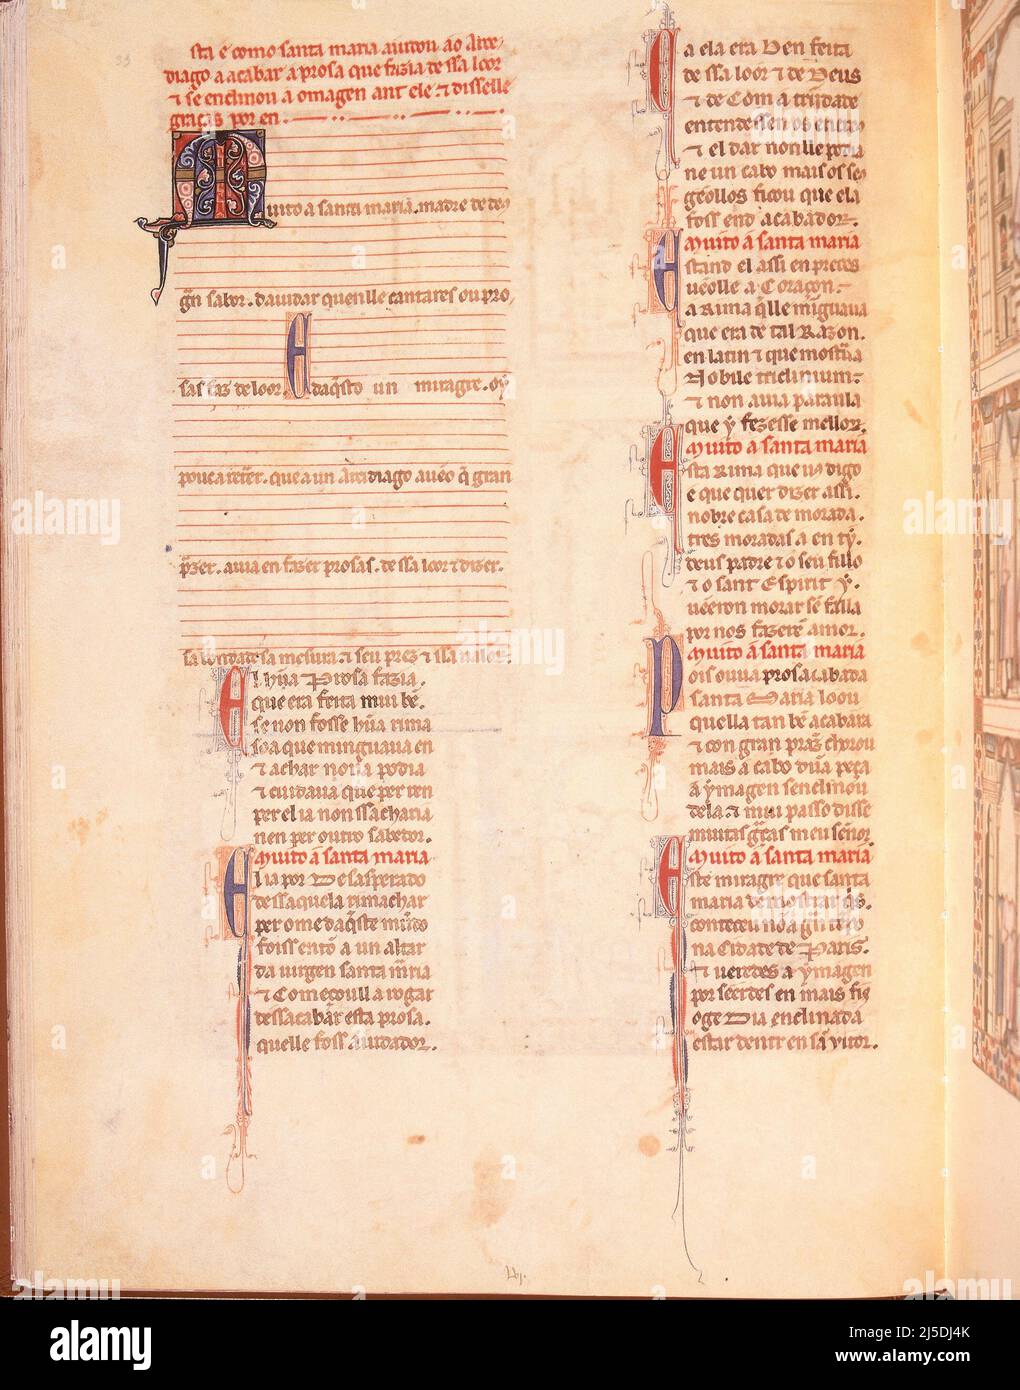 sta é como santa maria aiudou ao Arce-
diago a acabar a prosa que fazia de ssa loor
⁊ se enclinou a omagen ant ele ⁊ disselle
graças por en.
Muito a santa maria. madre de de9
grã sabor. daiudar quenlle cantares ou pro,
sas faz de loor. E daq̃sto un miragre. oỹ
pouca tẽer. que a un Arcidiago auẽo q̃ gran
prazer. auia en fazer prosas. de ssa loor ⁊ dizer.
sa bondade sa mesura ⁊ seu prez ⁊ ssa ualor.
E hũa Prosa fazia.
que era feita mui bẽ.
se non fosse hũa rima
soa que minguaua en
⁊ achar nõna podia
⁊ cuidaua que per ren
per el ia non ss acharia
nen per outro sabedor.
Muito á santa maria
E ia por Desasperado
dessaquela rimachar
per ome daq̃ste mũdo
foiss entõ a un altar
da uirgen santa mr̃ia
⁊ Començoull a rogar
dessacabar esta prosa.
quelle foss aiudador.
Ca ela era Ben feita
de ssa loor ⁊ de Deus
⁊ de Com a trijdade
entendessen os encreus
⁊ el dar nonlle podia
ne un cabo mais os se9
geollos ficou que ela
foss end acabador.
Muito á santa maria
Estand el assi en preces
uẽolle a Coraçon
a Rima q̃lle mĩguaua
que era de tal Razon.
en latin ⁊ que mostr̃a
Nobile triclinium
⁊ non auia paraula
que ỹ fezesse mellor.
Muito á santa maria
Esta Rima que uos digo
e que quer dizer assi.
nobre casa de morada.
tres moradas a en ty.
deus padre ⁊ o seu fillo
⁊ o sant Espirit ỹ.
uẽeron morar sẽ falla
por nos fazerẽ amor.
Muito á santa maria
Pois ouua prosacabada
santa Maria loou
quella tan bẽ acabara
⁊ con gran praz̃ chorou
mais a cabo dũa peça
a ỹmagen senclinou
dela. ⁊ mui passo disse
muitas gr̃as meu señor
Muito á santa maria
Este miragre que santa
maria demostrar q̃s.
conteceu nõ á gñ tẽpo
na Cidade de Paris.
⁊ ueredes a ỹmagen
por seerdes en mais fis
oge Dia enclinada
estar dentr en sã uitor.